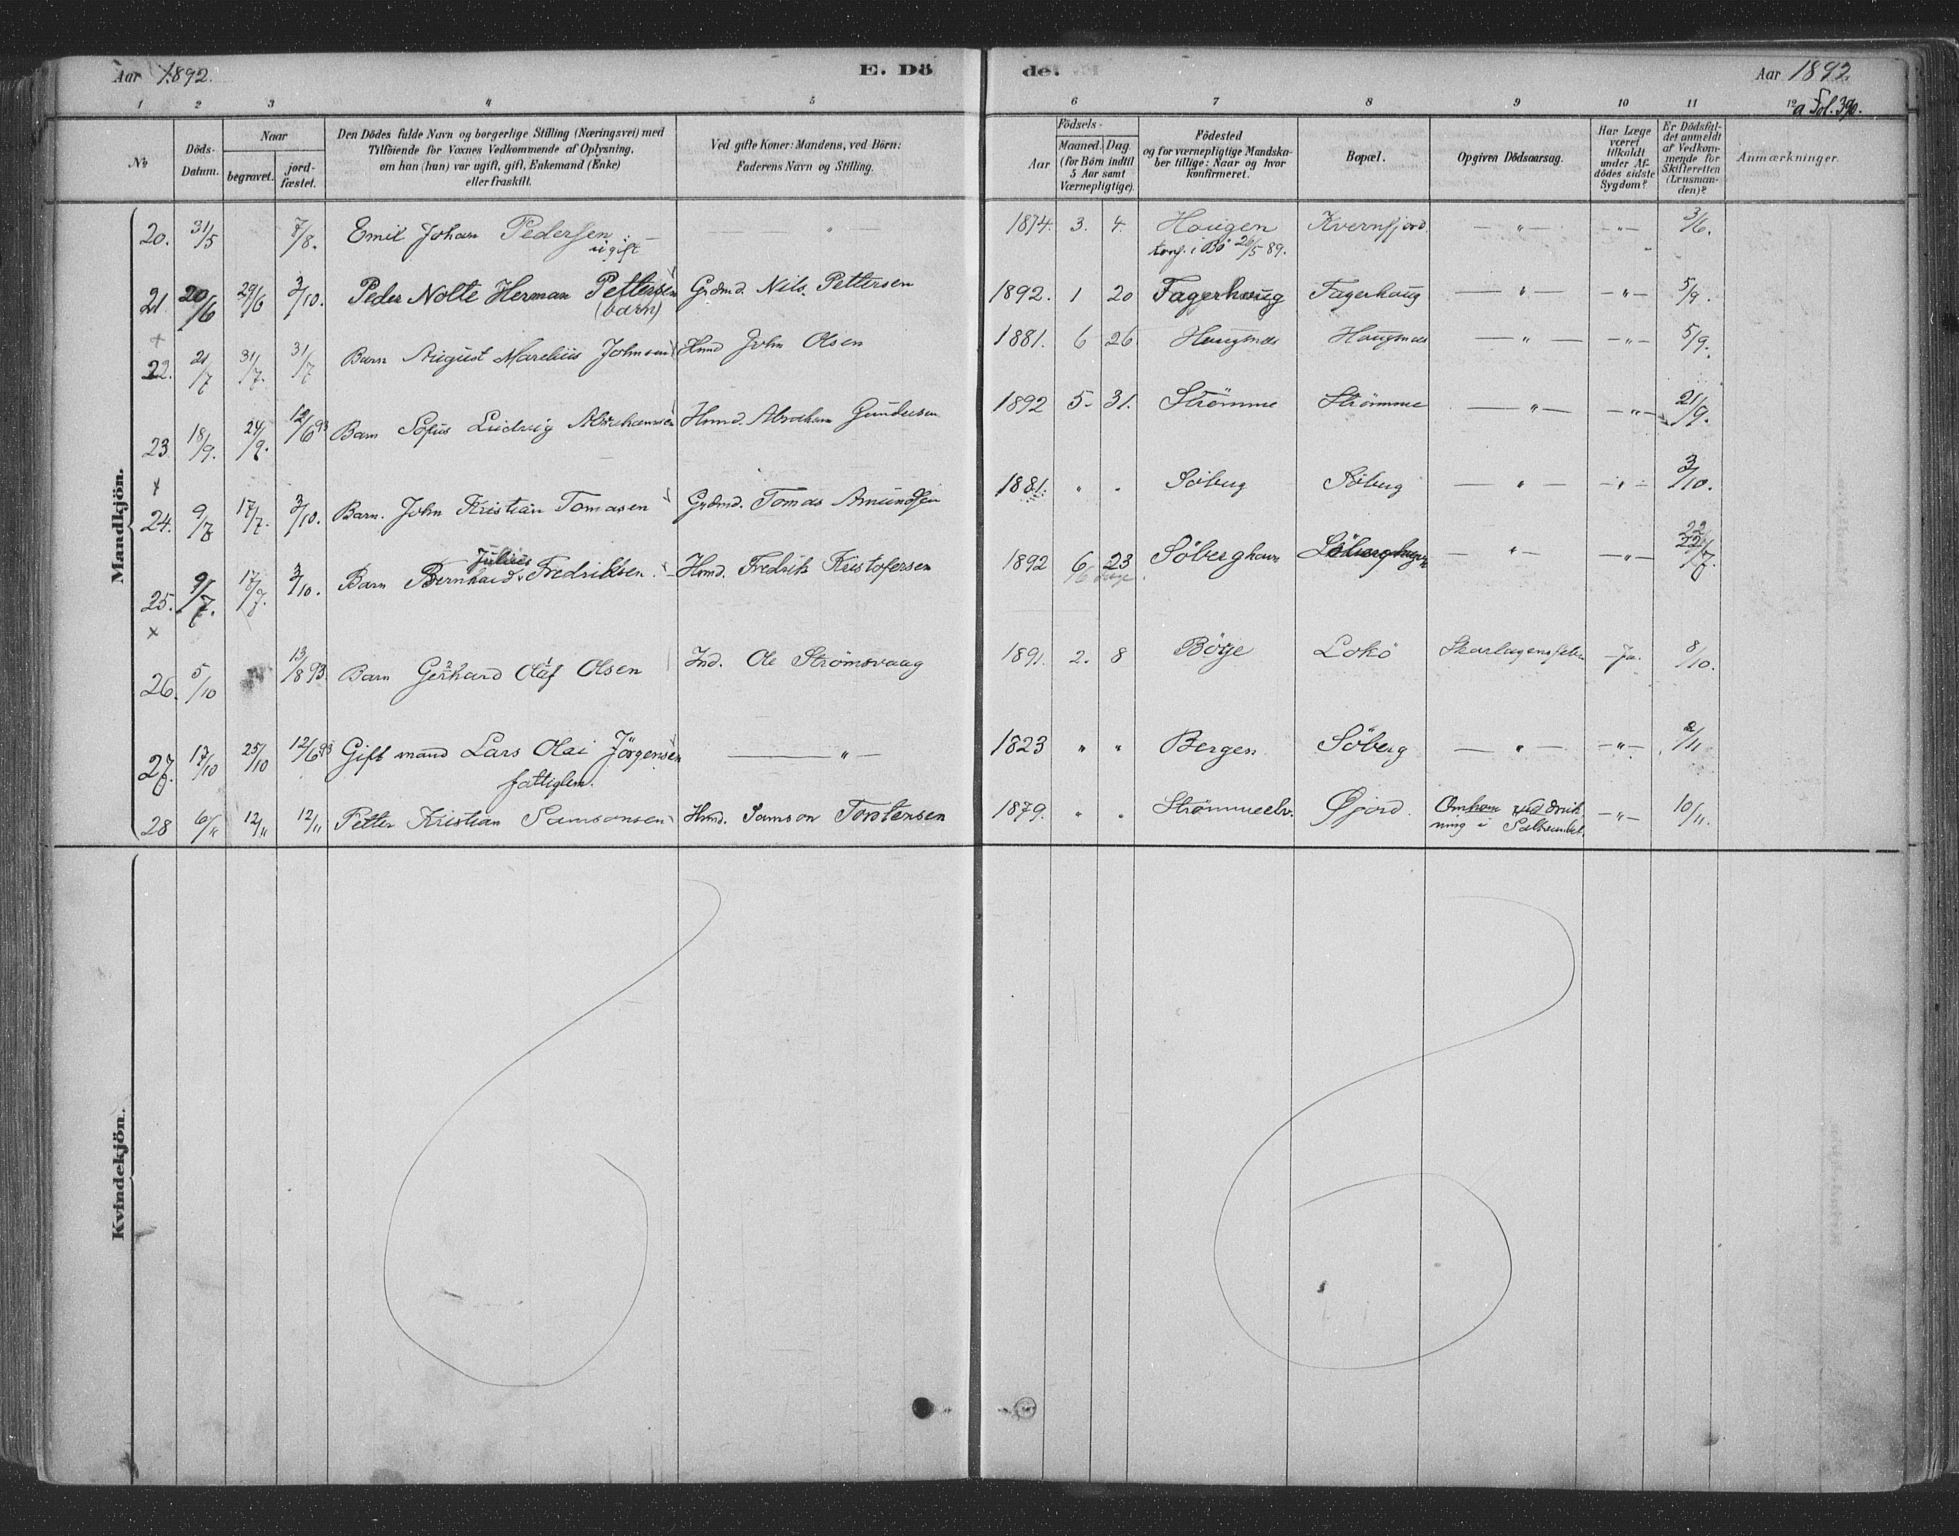 Aar 1892. E. Dö de. Aar 1892.
a Fol. 390.
1 2 3 4 5 6 7 8 9 10 11 12
No
Döds-Datum.
Naar
begravet.
jord-fæstet.
Den Dödes fulde Navn og borgerlige Stilling (Næringsvei) med
Tilföiende for Voxnes Vedkommende af Oplysning,
om han (hun) var ugift, gift, Enkemand (Enke)
eller fraskilt.
Ved gifte Koner: Mandens, ved Börn:
Faderens Navn og Stilling.
Födsels-
Aar
Maaned. Dag.
(for Börn indtil
5 Aar samt
Værnepligtige).
Födested
og for værnepligtige Mandska-
ber tillige: Naar og hvor
konfirmeret.
Bopæl.
Opgiven Dödsaarsag.
Har Læge
været
tilkaldt
under Af-
dödes sidste
Sygdom?
Er Dödsfal-
det anmeldt
af Vedkom-
mende for
Skifteretten
(Lensman-
den)?
Anmærkninger.
Mandkjön.
20. 31/5 7/8. Emil Johan Pedersen — " 1874. 3. 4. Haugen Kvernfjord. — " — — " — 3/6.
ugift konf. i Bö 26/5 89.
21 20/6 29/6 2/10. Peder Nolte Herman Pettersen Grdmd. Nils Pettersen 1892. 1 20 Fagerhaug Fagerhaug — " — — " — 5/9.
(barn)
+
22. 21/7 31/7. 31/7 Barn August Marelius Johnsen Hmd John Olsen 1881. 6 26 Haugsnes Haugsnes — " — — " — 5/9.
23. 18/9. 24/9. 12/6 93 Barn Sofus Ludvig Abrahamsen Hmd. Abraham Gundersen 1892 5. 31. Strömme Strömme — " — — " — 21/9.
+
24. 9/7 17/7. 3/10. Barn. John Kristian Tomasen Grdmd. Tomas Amundsen 1881. " " Söberg Söberg — " — — " — 3/10.
Julius
25. 9/7. 17/7. 3/10. Barn Bernhard Fredriksen. Hmd. Fredrik Kristofersen 1892 6 23 Söberghavn — " — — " — 22/7.
+
26. 5/10 13/8 93. Barn Gerhard Olaf Olsen Ind. Ole Strömsvaag 1891. 2. 8 Böge Lokö Skarlagensfeber Ja. 8/10.
27. 17/10 25/10 12/6 93 Gift mand Lars Olai Jörgensen — " — 1823 " " Bergen Söberg — " — — " — 2/11
fattiglem.
28 6/11 12/11 12/11 Petter Kristian Samsonsen Hmd. Samson Torstensen 1879. " " Strömmeelv. Øjord. Omkom ved druk- — " — 10/11.
ning i
Kvindekjön.